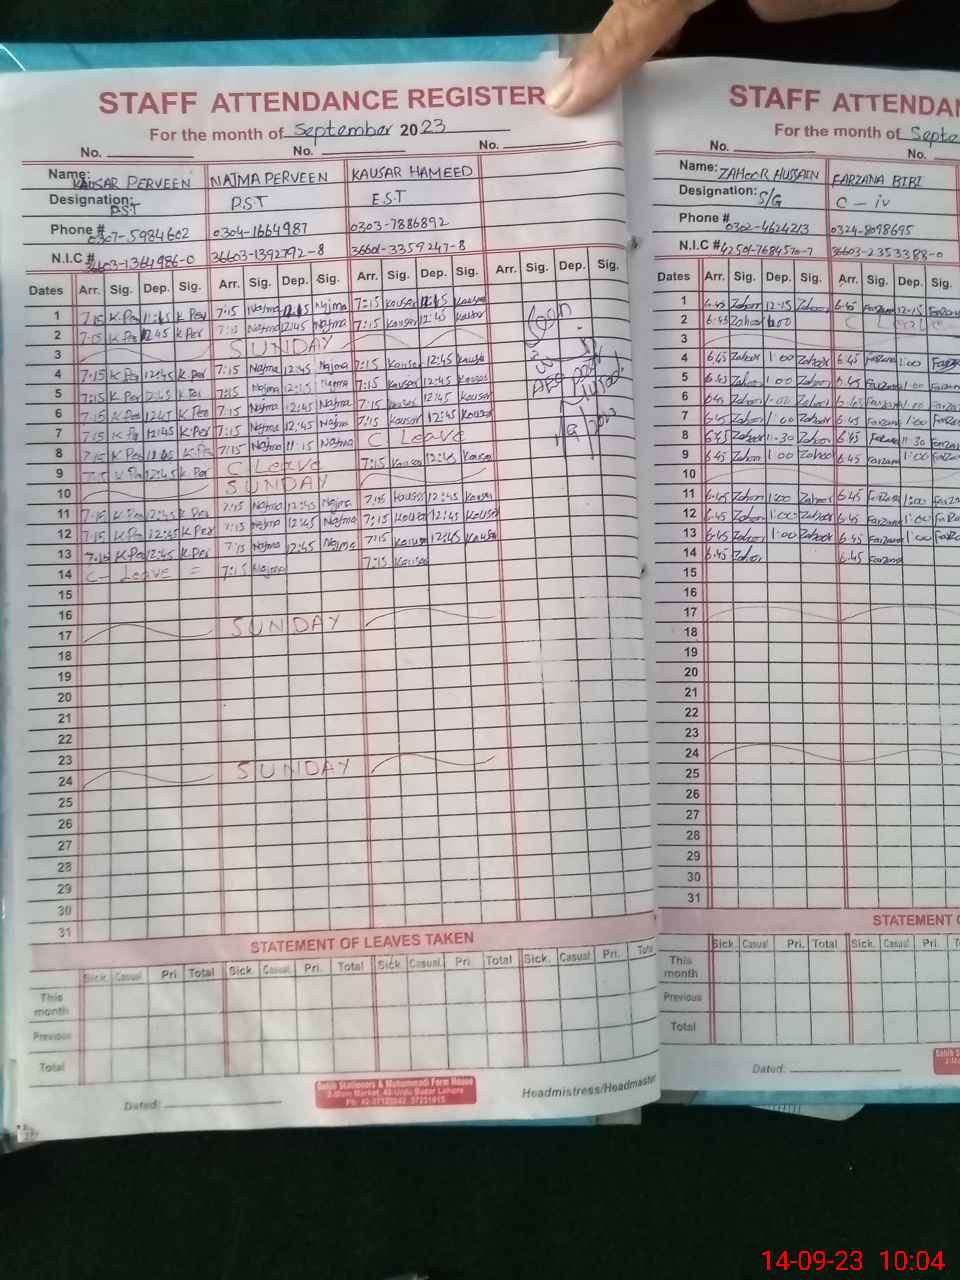 STAFF ATTENDANCE REGISTER
For the month of September 2023
No. No. No.
Name: KAUSAR PERVEEN NAJMA PERVEEN KAUSAR HAMEED
Designation: PST P.S.T E.S.T
Phone # 0307-5984602 0304-1664987 0303-7886892
N.I.C # 36603-1364986-0 36603-1392792-8 36601-3359247-8
Dates Arr. Sig. Dep. Sig. Arr. Sig. Dep. Sig. Arr. Sig. Dep. Sig. Arr. Sig. Dep. Sig.
1 7:15 K.Per K Per 7:15 Najma 12:15 Najma 7:15 Kauser 12:15 Kauser
2 7:15 K.Per 12:45 K Per 7:15 Najma 12:45 Najma 7:15 Kauser 12:45 Kauser
3 SUNDAY
4 7:15 K.Per 12:45 K.Per 7:15 Najma 12:45 Najma 7:15 Kauser 12:45 Kauser
5 7:15 K.Per 12:45 K Per 7:15 Najma Najma 7:15 Kauser 12:45 Kauser
6 7:15 K.Per 12:45 K Per 7:15 Najma 12:45 Najma 7:15 Kauser 12:45 Kauser
7 7:15 K Per 12:45 K.Per 7:15 Najma 12:45 Najma 7:15 Kauser 12:45 Kauser
8 7:15 K.Per K.Per 7:15 Najma 11:15 Najma C Leave
9 7:15 K.Per 12:45 K Per C Leave 7:15 Kauser 12:45 Kauser
10 SUNDAY
11 7:15 K.Per 12:45 K Per 7:15 Najma 12:45 Najma 7:15 Kauser 12:45 Kauser
12 7:15 K.Per 12:45 K Per 7:15 Najma 12:45 Najma 7:15 Kauser 12:45 Kauser
13 7:15 K.Per 12:45 K Per 7:15 Najma 12:45 Najma 7:15 Kauser 12:45 Kauser
14 C- Leave = 7:15 Najma 7:15 Kauser
15
16
17 SUNDAY
18
19
20
21
22
23
24 SUNDAY
25
26
27
28
29
30
31
STATEMENT OF LEAVES TAKEN
Sick. Casual Pri. Total Sick. Casual. Pri. Total Sick. Casual. Pri. Total Sick. Casual. Pri. Total
This month
Previous
Total
Dated:
Headmistress/Headmaster
Sahib Stationers & Muhammadi Form House
Market, Urdu Bazar Lahore
STAFF ATTENDAN
For the month of Septe
No.
Name: ZAHOOR HUSSAIN FARZANA BIBI
Designation: S/G C - iv
Phone # 0302-4624213 0324-8098695
N.I.C # 42501-7684570-7 36603-2353388-0
Dates Arr. Sig. Dep. Sig. Arr. Sig. Dep. Sig.
1 6:45 Zahoor 12-15 Zahoor 6:45 Farzana 12-15 Farzana
2 6:45 Zahoor 1:00 C Leave
3
4 6:45 Zahoor 1:00 Zahoor 6:45 Farzana 1:00 Farzana
5 6:45 Zahoor 1:00 Zahoor 6:45 Farzana 1:00 Farzana
6 6:45 Zahoor 1:00 Zahoor 6:45 Farzana 1:00 Farzana
7 6:45 Zahoor 1:00 Zahoor 6:45 Farzana 1:00 Farzana
8 6:45 Zahoor 11-30 Zahoor 6:45 Farzana 11-30 Farzana
9 6:45 Zahoor 1:00 Zahoor 6:45 Farzana 1:00 Farzana
10
11 6:45 Zahoor 1:00 Zahoor 6:45 Farzana 1:00 Farzana
12 6:45 Zahoor 1:00 Zahoor 6:45 Farzana 1:00 Farzana
13 6:45 Zahoor 1:00 Zahoor 6:45 Farzana 1:00 Farzana
14 6:45 Zahoor 6:45 Farzana
15
16
17
18
19
20
21
22
23
24
25
26
27
28
29
30
31
STATEMENT O
Sick. Casual Pri. Total Sick. Casual. Pri.
This month
Previous
Total
Dated:
14-09-23 10:04